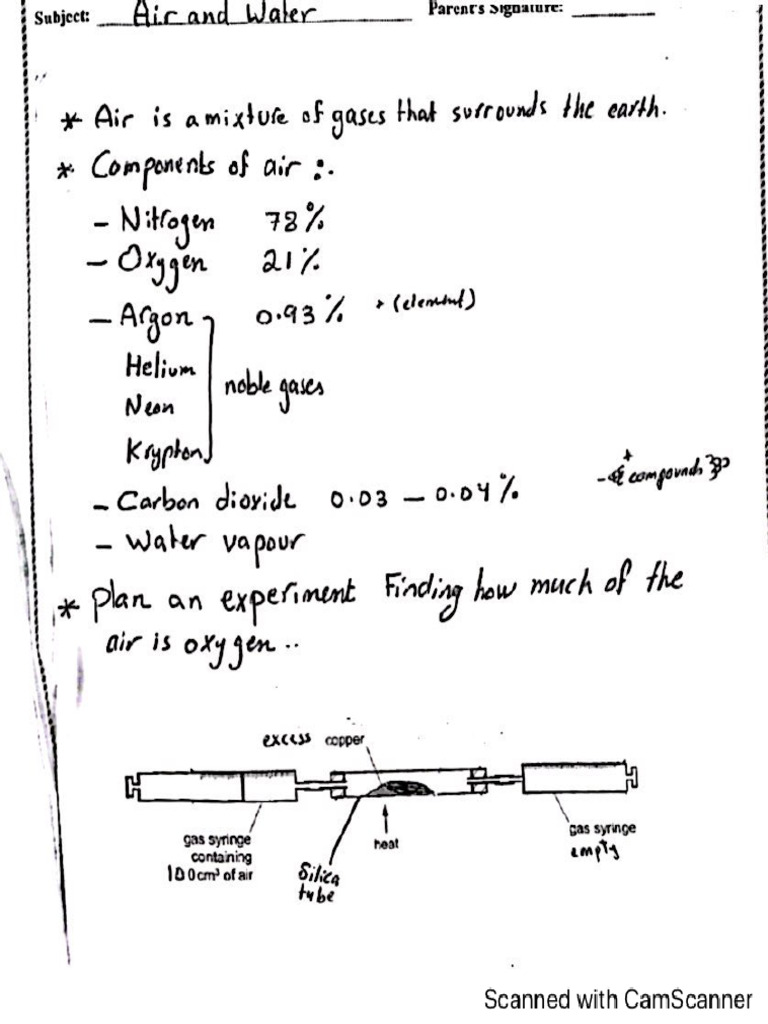 Subject: Air and Water Parent's Signature:
* Air is a mixture of gases that surrounds the earth.
* Components of air :.
- Nitrogen 78%
- Oxygen 21%
- Argon 0.93% * (element)
Helium
noble gases
Neon
Krypton
- Carbon dioxide 0.03 - 0.04% - compounds
- Water vapour
* Plan an experiment Finding how much of the
air is oxygen..
excess copper
gas syringe
containing
100cm³ of air
heat
Silica
tube
gas syringe
empty
Scanned with CamScanner